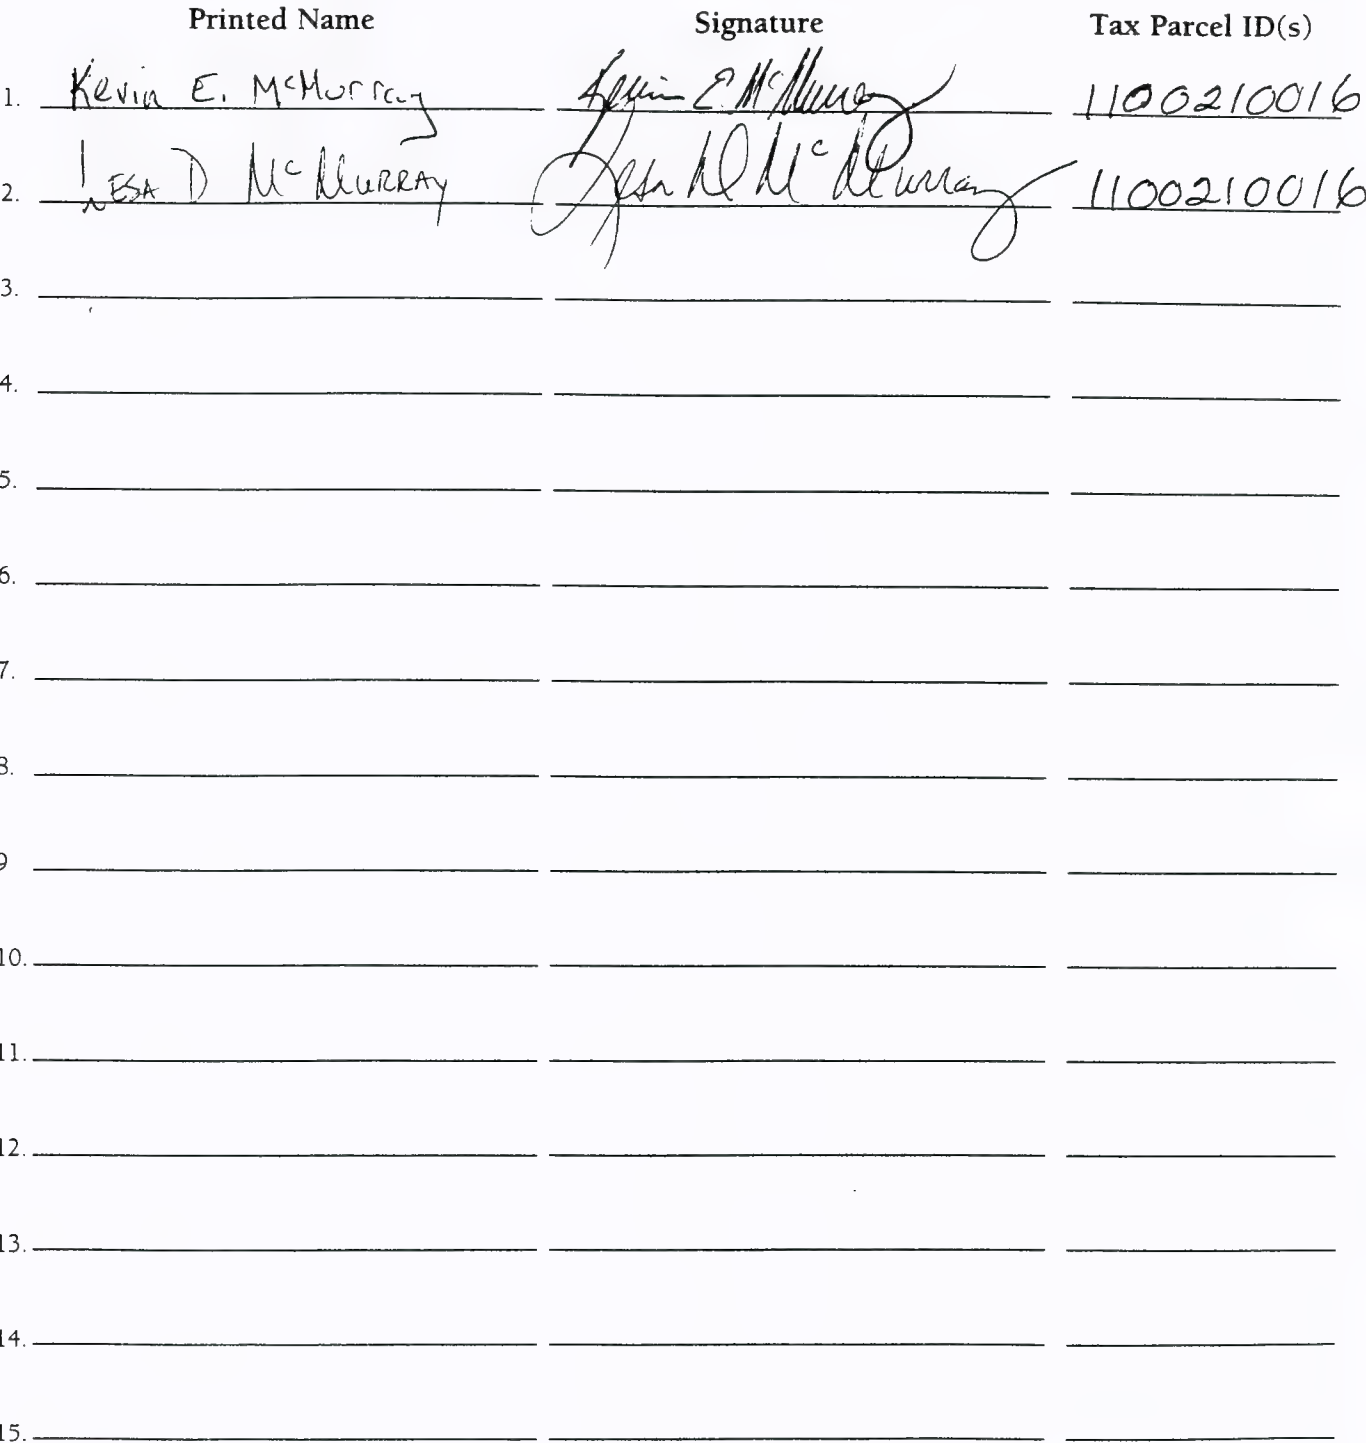 Printed Name Signature Tax Parcel ID(s)
1. Kevin E. McMurray Kevin E. McMurray 1100210016
2. LESA D McMURRAY Lesa D McMurray 1100210016
3.
4.
5.
6.
7.
8.
9
10.
11.
12.
13.
14.
15.